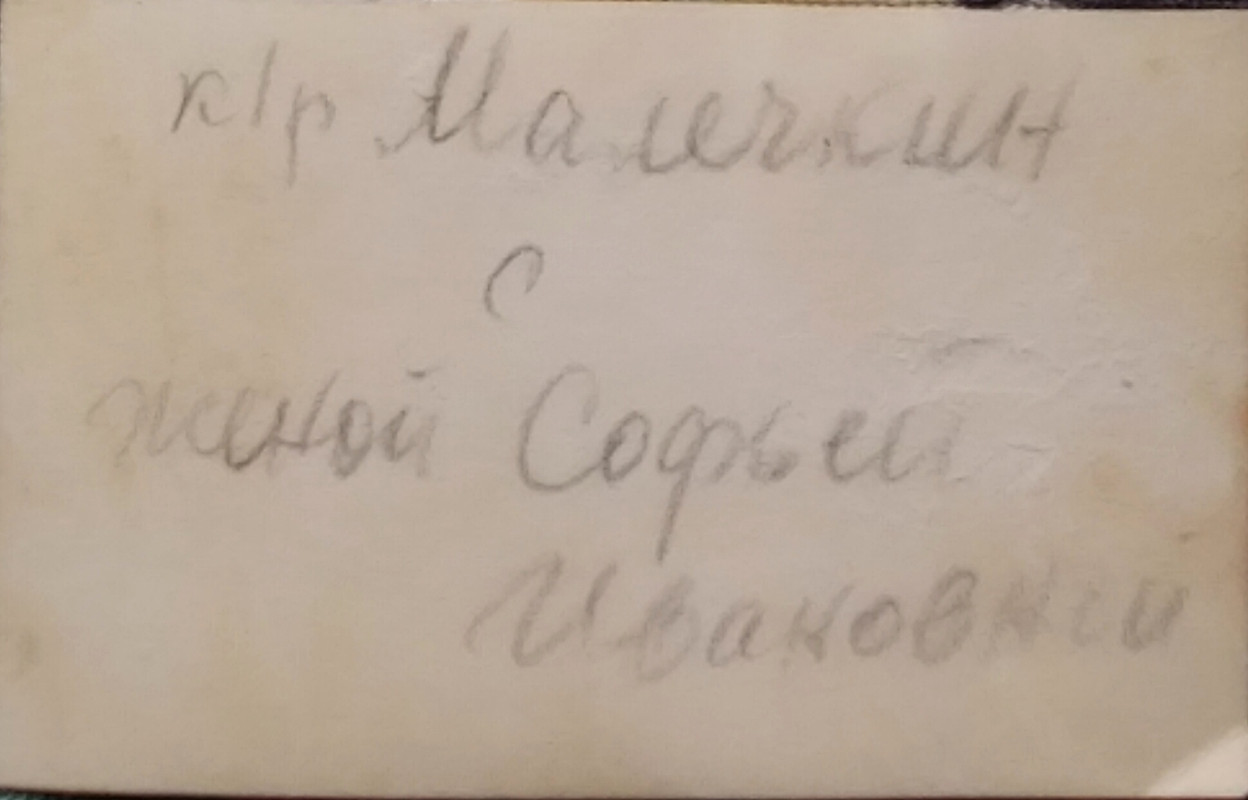 к/р Малечкин
с
женой Софьей
Ивановной